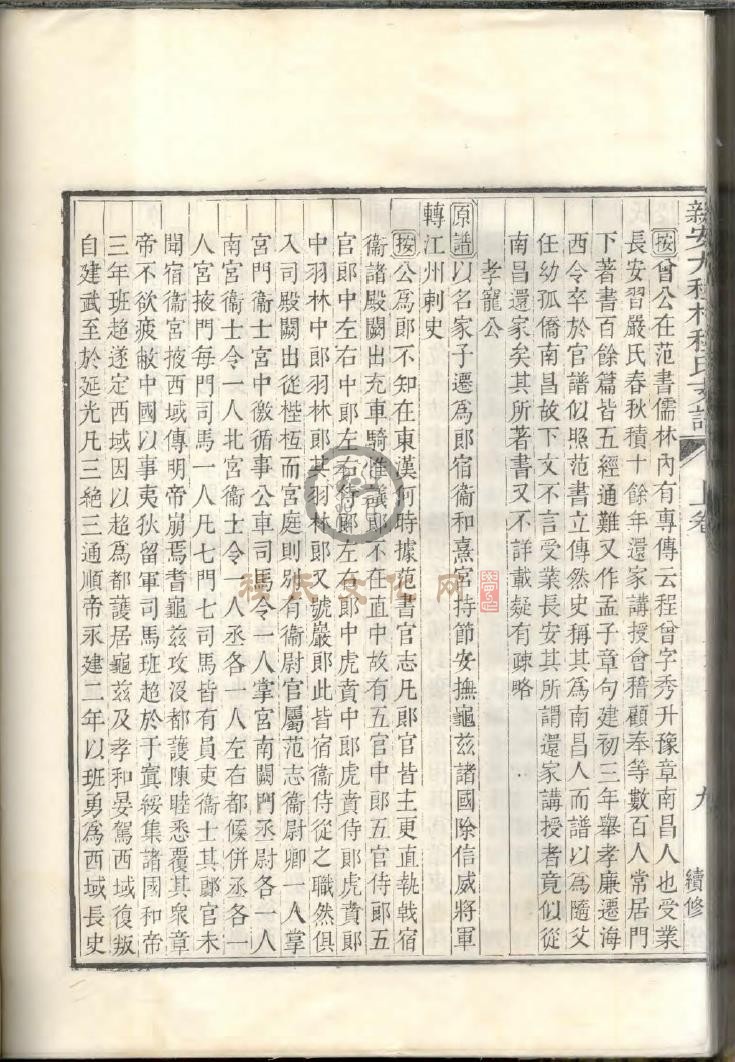 新安大程村程氏支譜 上卷 九 續修
按曾公在范書儒林內有專傳云程曾字秀升豫章南昌人也受業
長安習嚴氏春秋積十餘年還家講授會稽顧奉等數百人常居門
下著書百餘篇皆五經通難又作孟子章句建初三年舉孝廉遷海
西令卒於官譜似照范書立傳然史稱其爲南昌人而譜以爲隨父
任幼孤僑南昌故下文不言受業長安其所謂還家講授者竟似從
南昌還家矣其所著書又不詳載疑有疎略
孝寵公
原譜以名家子遷爲郎宿衞和熹宮持節安撫龜茲諸國除信威將軍
轉江州刺史
按公爲郎不知在東漢何時據范書官志凡郎官皆主更直執戟宿
衞諸殿闕出充車騎惟議郎不在直中故有五官中郎五官侍郎五
官郎中左右中郎左右侍郎左右郎中虎賁中郎虎賁侍郎虎賁郎
中羽林中郎羽林郎其羽林郎又號嚴郎此皆宿衞侍從之職然俱
入司殿闕出從梐枑而宮庭則別有衞尉官屬范志衞尉卿一人掌
宮門衞士宮中徼循事公車司馬令一人掌宮南闕門丞尉各一人
南宮衞士令一人北宮衞士令一人丞各一人左右都候併丞各一
人宮掖門每門司馬一人凡七門七司馬皆有員吏衞士其郎官未
聞宿衞宮掖西域傳明帝崩焉耆龜茲攻沒都護陳睦悉覆其衆章
帝不欲疲敝中國以事夷狄留軍司馬班超於于窴綏集諸國和帝
三年班超遂定西域因以超爲都護居龜茲及孝和晏駕西域復叛
自建武至於延光凡三絶三通順帝永建二年以班勇爲西域長史
程氏文化网